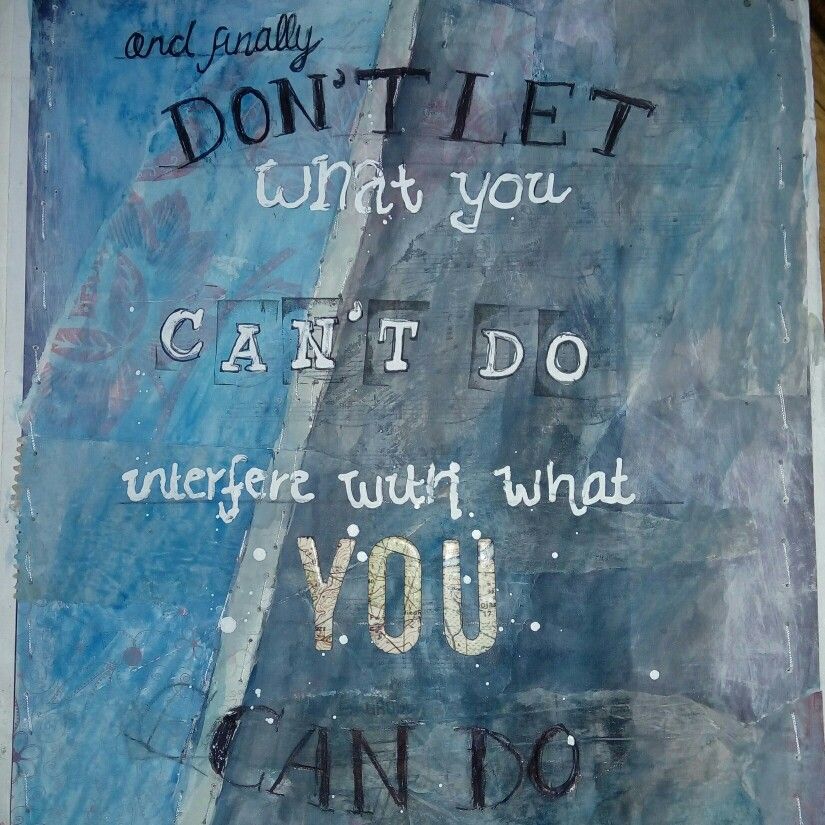 and finally
DON'T LET
what you
CAN'T DO
interfere with what
YOU
CAN DO